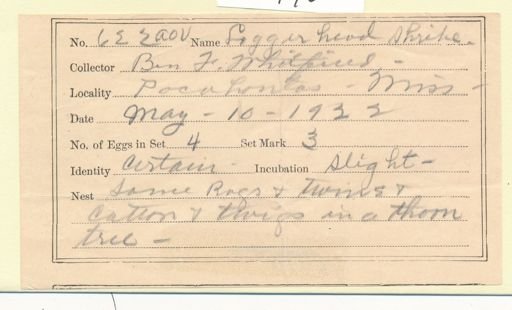 No. 622 aou Name Loggerhead Shrike.
Collector Ben F.
Locality Pocahontas - Miss -
Date May - 10 - 1922
No. of Eggs in Set 4 Set Mark 3
Identity Certain - Incubation Slight -
Nest Some Rags & twine &
Cotton & thigs in a thorn
tree -